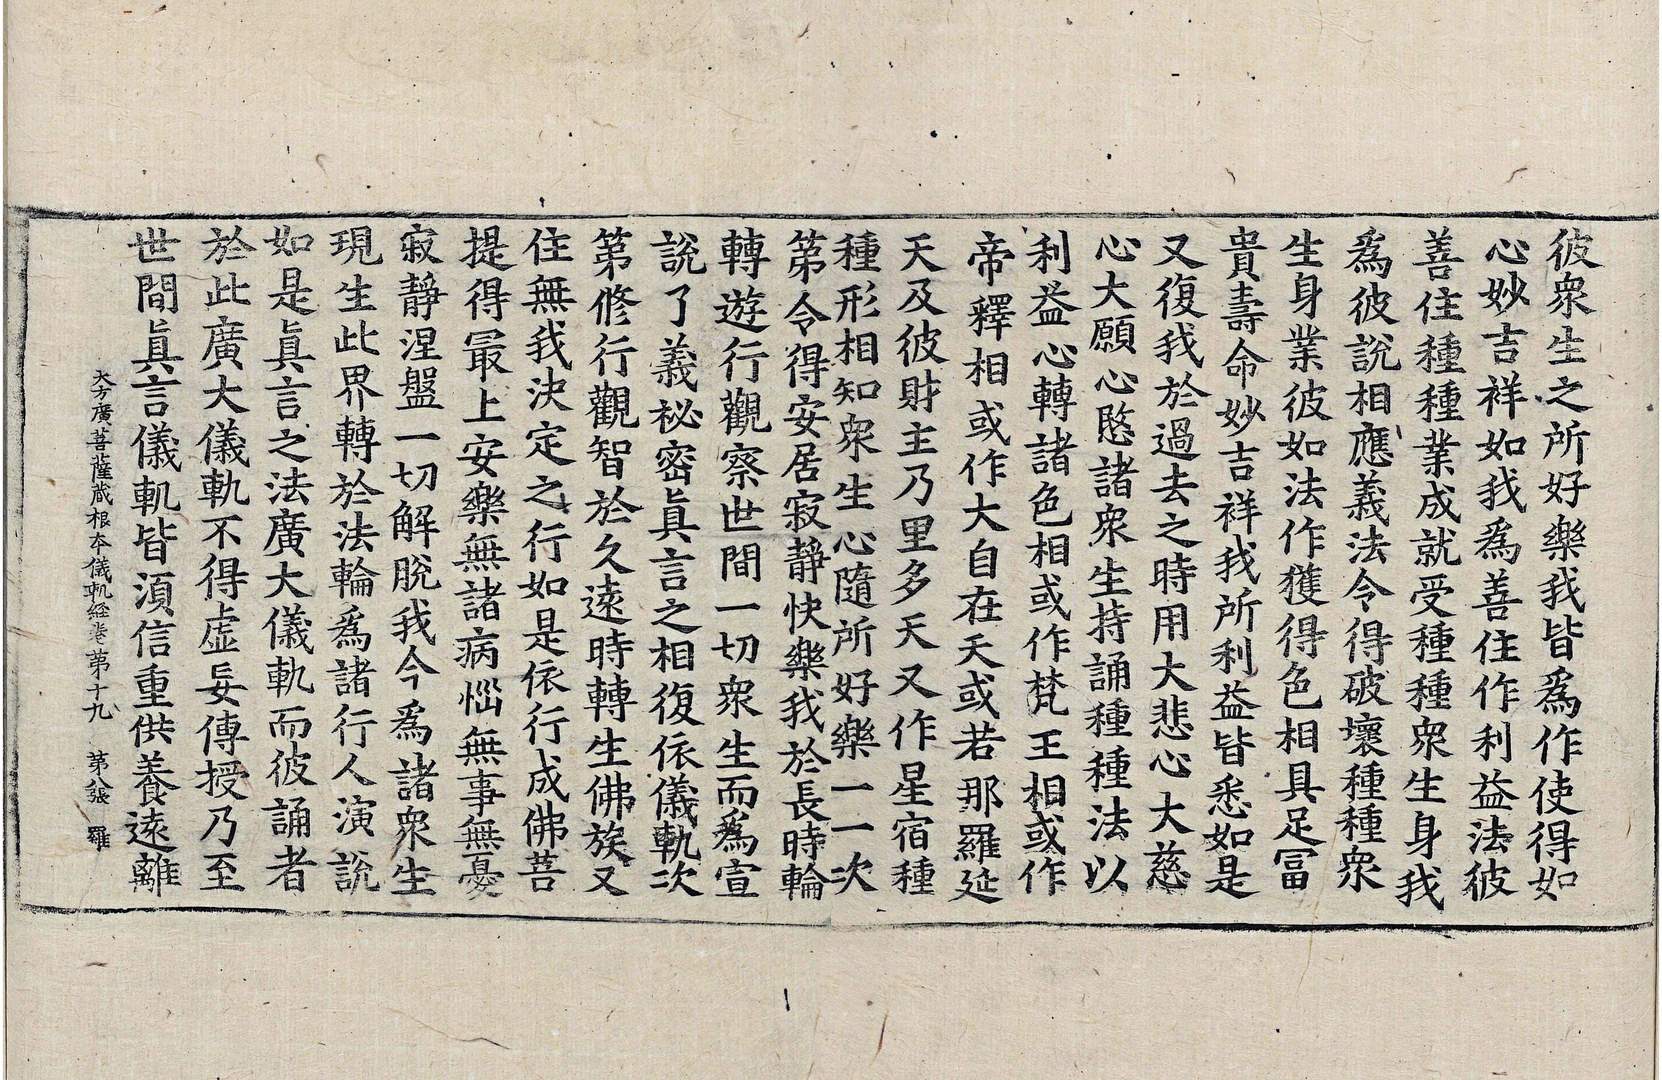 彼衆生之所好樂我皆爲作使得如
心妙吉祥如我爲善住作利益法彼
善住種種業成就受種種衆生身我
爲彼說相應義法令得破壞種種衆
生身業彼如法作獲得色相具足冨
貴壽命妙吉祥我所利益皆悉如是
又復我於過去之時用大悲心大慈
心大願心愍諸衆生持誦種種法以
利益心轉諸色相或作梵王相或作
帝釋相或作大自在天或若那羅延
天及彼財主乃里多天又作星宿種
種形相知衆生心隨所好樂一一次
第令得安居寂靜快樂我於長時輪
轉遊行觀察世間一切衆生而爲宣
說了義秘密眞言之相復依儀軌次
第修行觀智於久遠時轉生佛族又
住無我決定之行如是依行成佛菩
提得冣上安樂無諸病惱無事無憂
寂靜涅盤一切解脫我今爲諸衆生
現生此界轉於法輪爲諸行人演說
如是眞言之法廣大儀軌而彼誦者
於此廣大儀軌不得虛妄傳授乃至
世間眞言儀軌皆湏信重供養遠離
大方廣菩薩蔵根本儀軌經卷第十九 第八張 羅